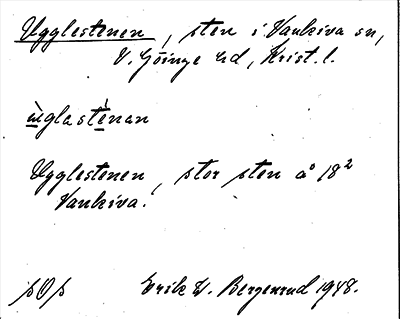 Ugglestenen, sten i Vankiva sn,
V. Göinge hd, Krist. l.
ùglastènan
Ugglestenen, stor sten å 18²
Vankiva.
pOp Erik W. Bergenrud 1948.